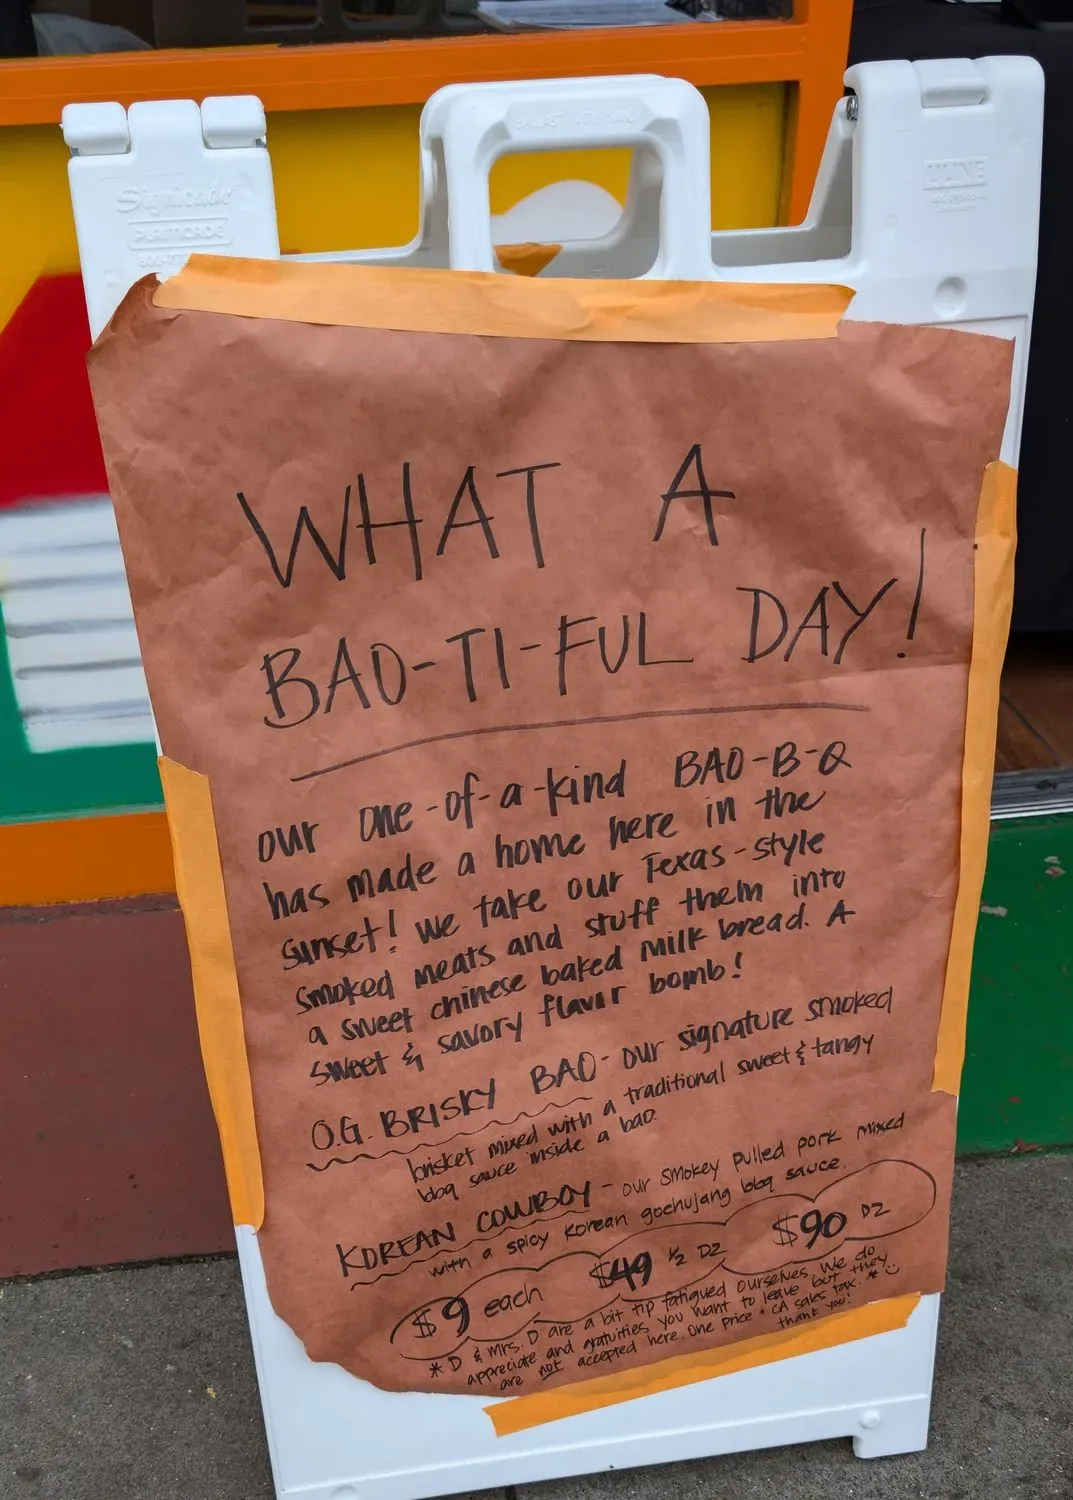 BALLAST WITH SAND
Signicade
PLASTICADE
WHAT A
BAO-TI-FUL DAY!
our one-of-a-kind BAO-B-Q
has made a home here in the
sunset! we take our Texas-style
smoked meats and stuff them into
a sweet chinese baked milk bread. A
sweet & savory flavor bomb!
O.G. BRISKY BAO - our signature smoked
brisket mixed with a traditional sweet & tangy
bbq sauce inside a bao.
KOREAN COWBOY - our smokey pulled pork mixed
with a spicy korean gochujang bbq sauce.
$9 each $49 ½ DZ $90 DZ
* D & Mrs. D are a bit tip fatigued ourselves. We do
appreciate and gratuities you want to leave but they
are not accepted here. One price + CA sales tax. *
thank you!